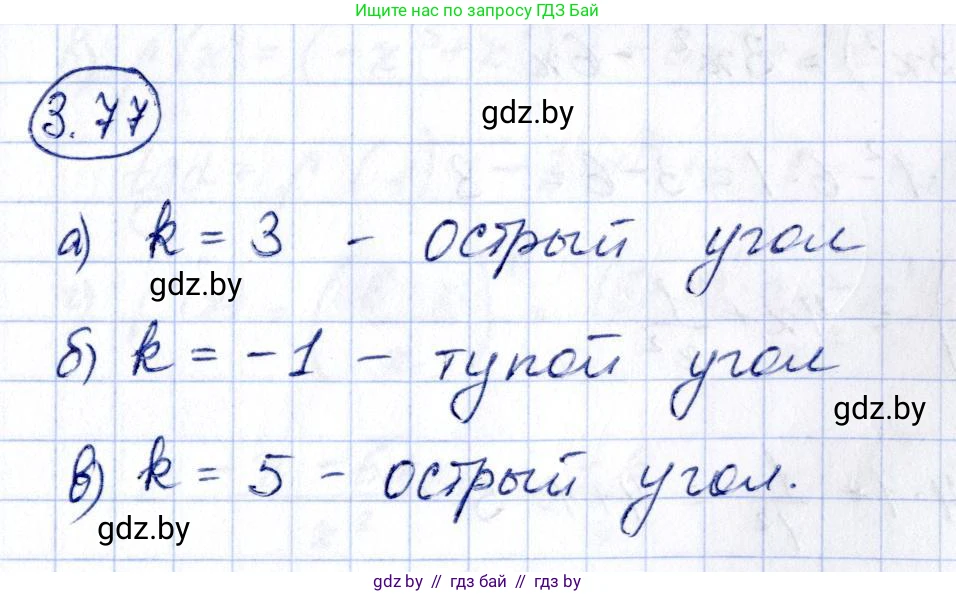 Ищите нас по запросу ГДЗ Бай
3.77
gdz.by
а) k = 3 - острый угол
gdz.by
б) k = -1 - тупой угол
gdz.by
в) k = 5 - острый угол.
gdz.by
gdz.by // гдз бай // гдз by